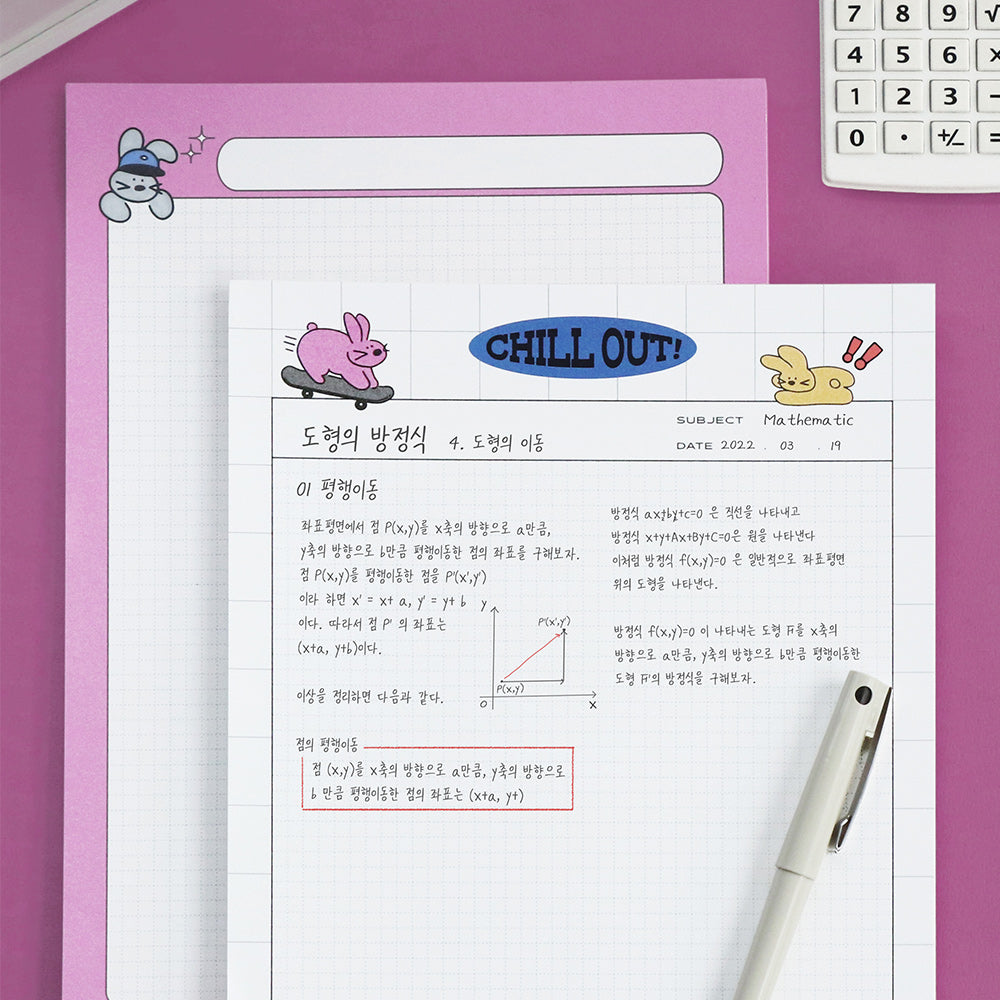 7 8 9 √
4 5 6 ×
1 2 3 −
0 · +/− =
CHILL OUT!
도형의 방정식 4. 도형의 이동
SUBJECT Mathematic
DATE 2022 . 03 . 19
01 평행이동
좌표평면에서 점 P(x,y)를 x축의 방향으로 a만큼,
y축의 방향으로 b만큼 평행이동한 점의 좌표를 구해보자.
점 P(x,y)를 평행이동한 점을 P'(x',y')
이라 하면 x' = x+ a, y' = y+ b
이다. 따라서 점 P' 의 좌표는
(x+a, y+b)이다.
y
P'(x',y')
P(x,y)
O
x
이상을 정리하면 다음과 같다.
점의 평행이동
점 (x,y)를 x축의 방향으로 a만큼, y축의 방향으로
b 만큼 평행이동한 점의 좌표는 (x+a, y+)
방정식 ax+by+c=0 은 직선을 나타내고
방정식 x+y+Ax+By+C=0은 원을 나타낸다
이처럼 방정식 f(x,y)=0 은 일반적으로 좌표평면
위의 도형을 나타낸다.
방정식 f(x,y)=0 이 나타내는 도형 F를 x축의
방향으로 a만큼, y축의 방향으로 b만큼 평행이동한
도형 F'의 방정식을 구해보자.